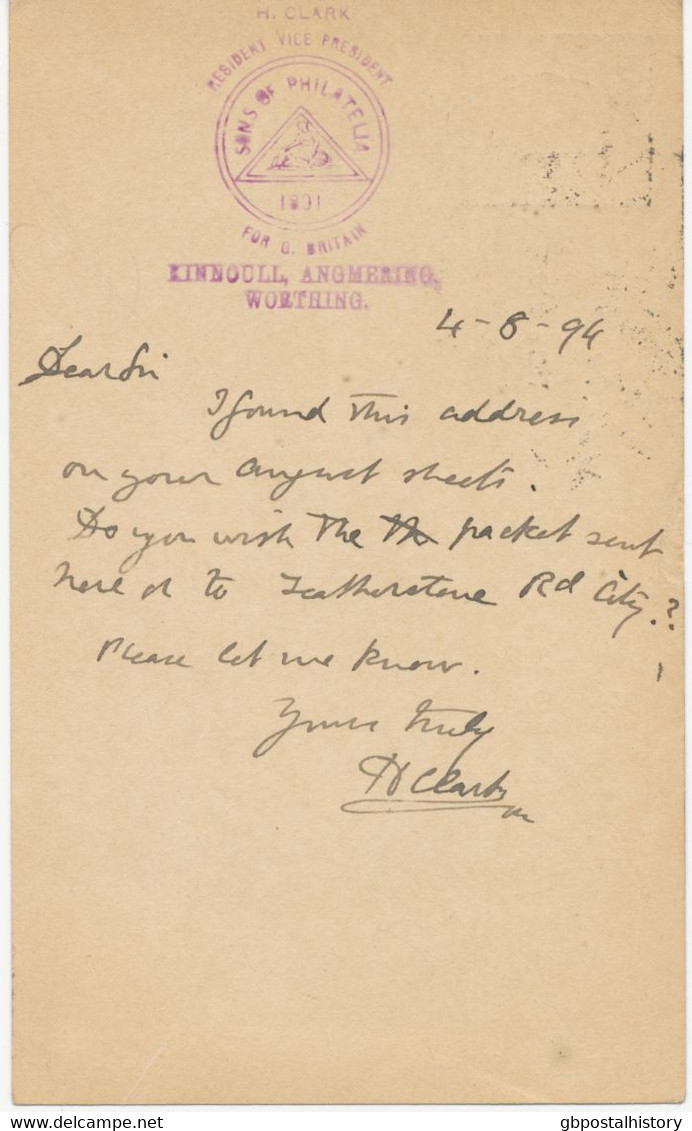 H. CLARK
RESIDENT VICE PRESIDENT
SONS OF PHILATELIA
1891
FOR G. BRITAIN
KINNOULL, ANGMERING,
WORTHING.
4-8-94
Dear Sir
I found this address
on your august sheets.
Do you wish the packet sent
here or to Featherstone Rd City.?
Please let me know.
Yours truly
H Clark
www.delcampe.net
gbpostalhistory